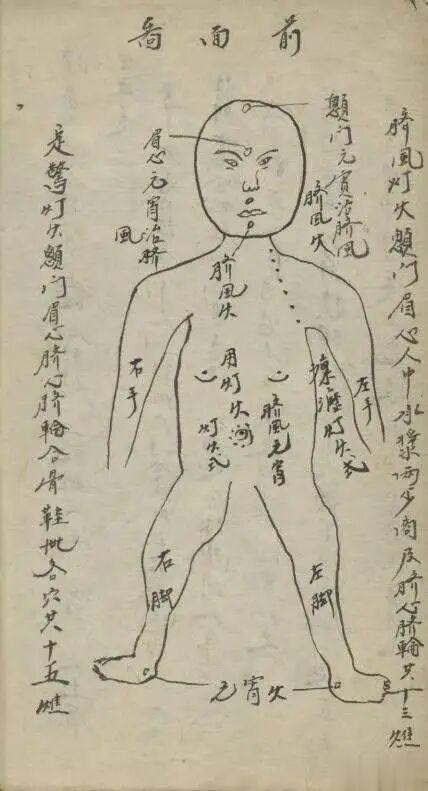 前面啚
臍風灯火顖门眉心人中承漿两少商及臍心臍輪共十三燋
顖门元宵治臍風
臍風火
眉心元宵治臍風
臍風火
左手
右手
瘰癧灯火式
臍風元宵
用灯火
灯火式
左脚
右脚
元宵火
定驚灯火顖门眉心臍心臍輪合骨鞋批各穴共十五燋